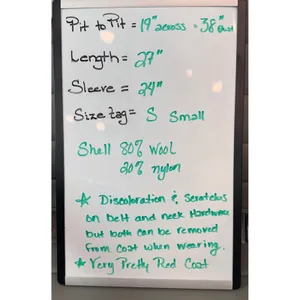 Pit to Pit = 19" across = 38" bust
Length = 27"
Sleeve = 24"
Size tag = S Small
Shell 80% Wool
20% nylon
☆ Discoloration & Scratches
on belt and neck Hardware
but both can be removed
from coat when wearing.
☆ Very Pretty Red Coat